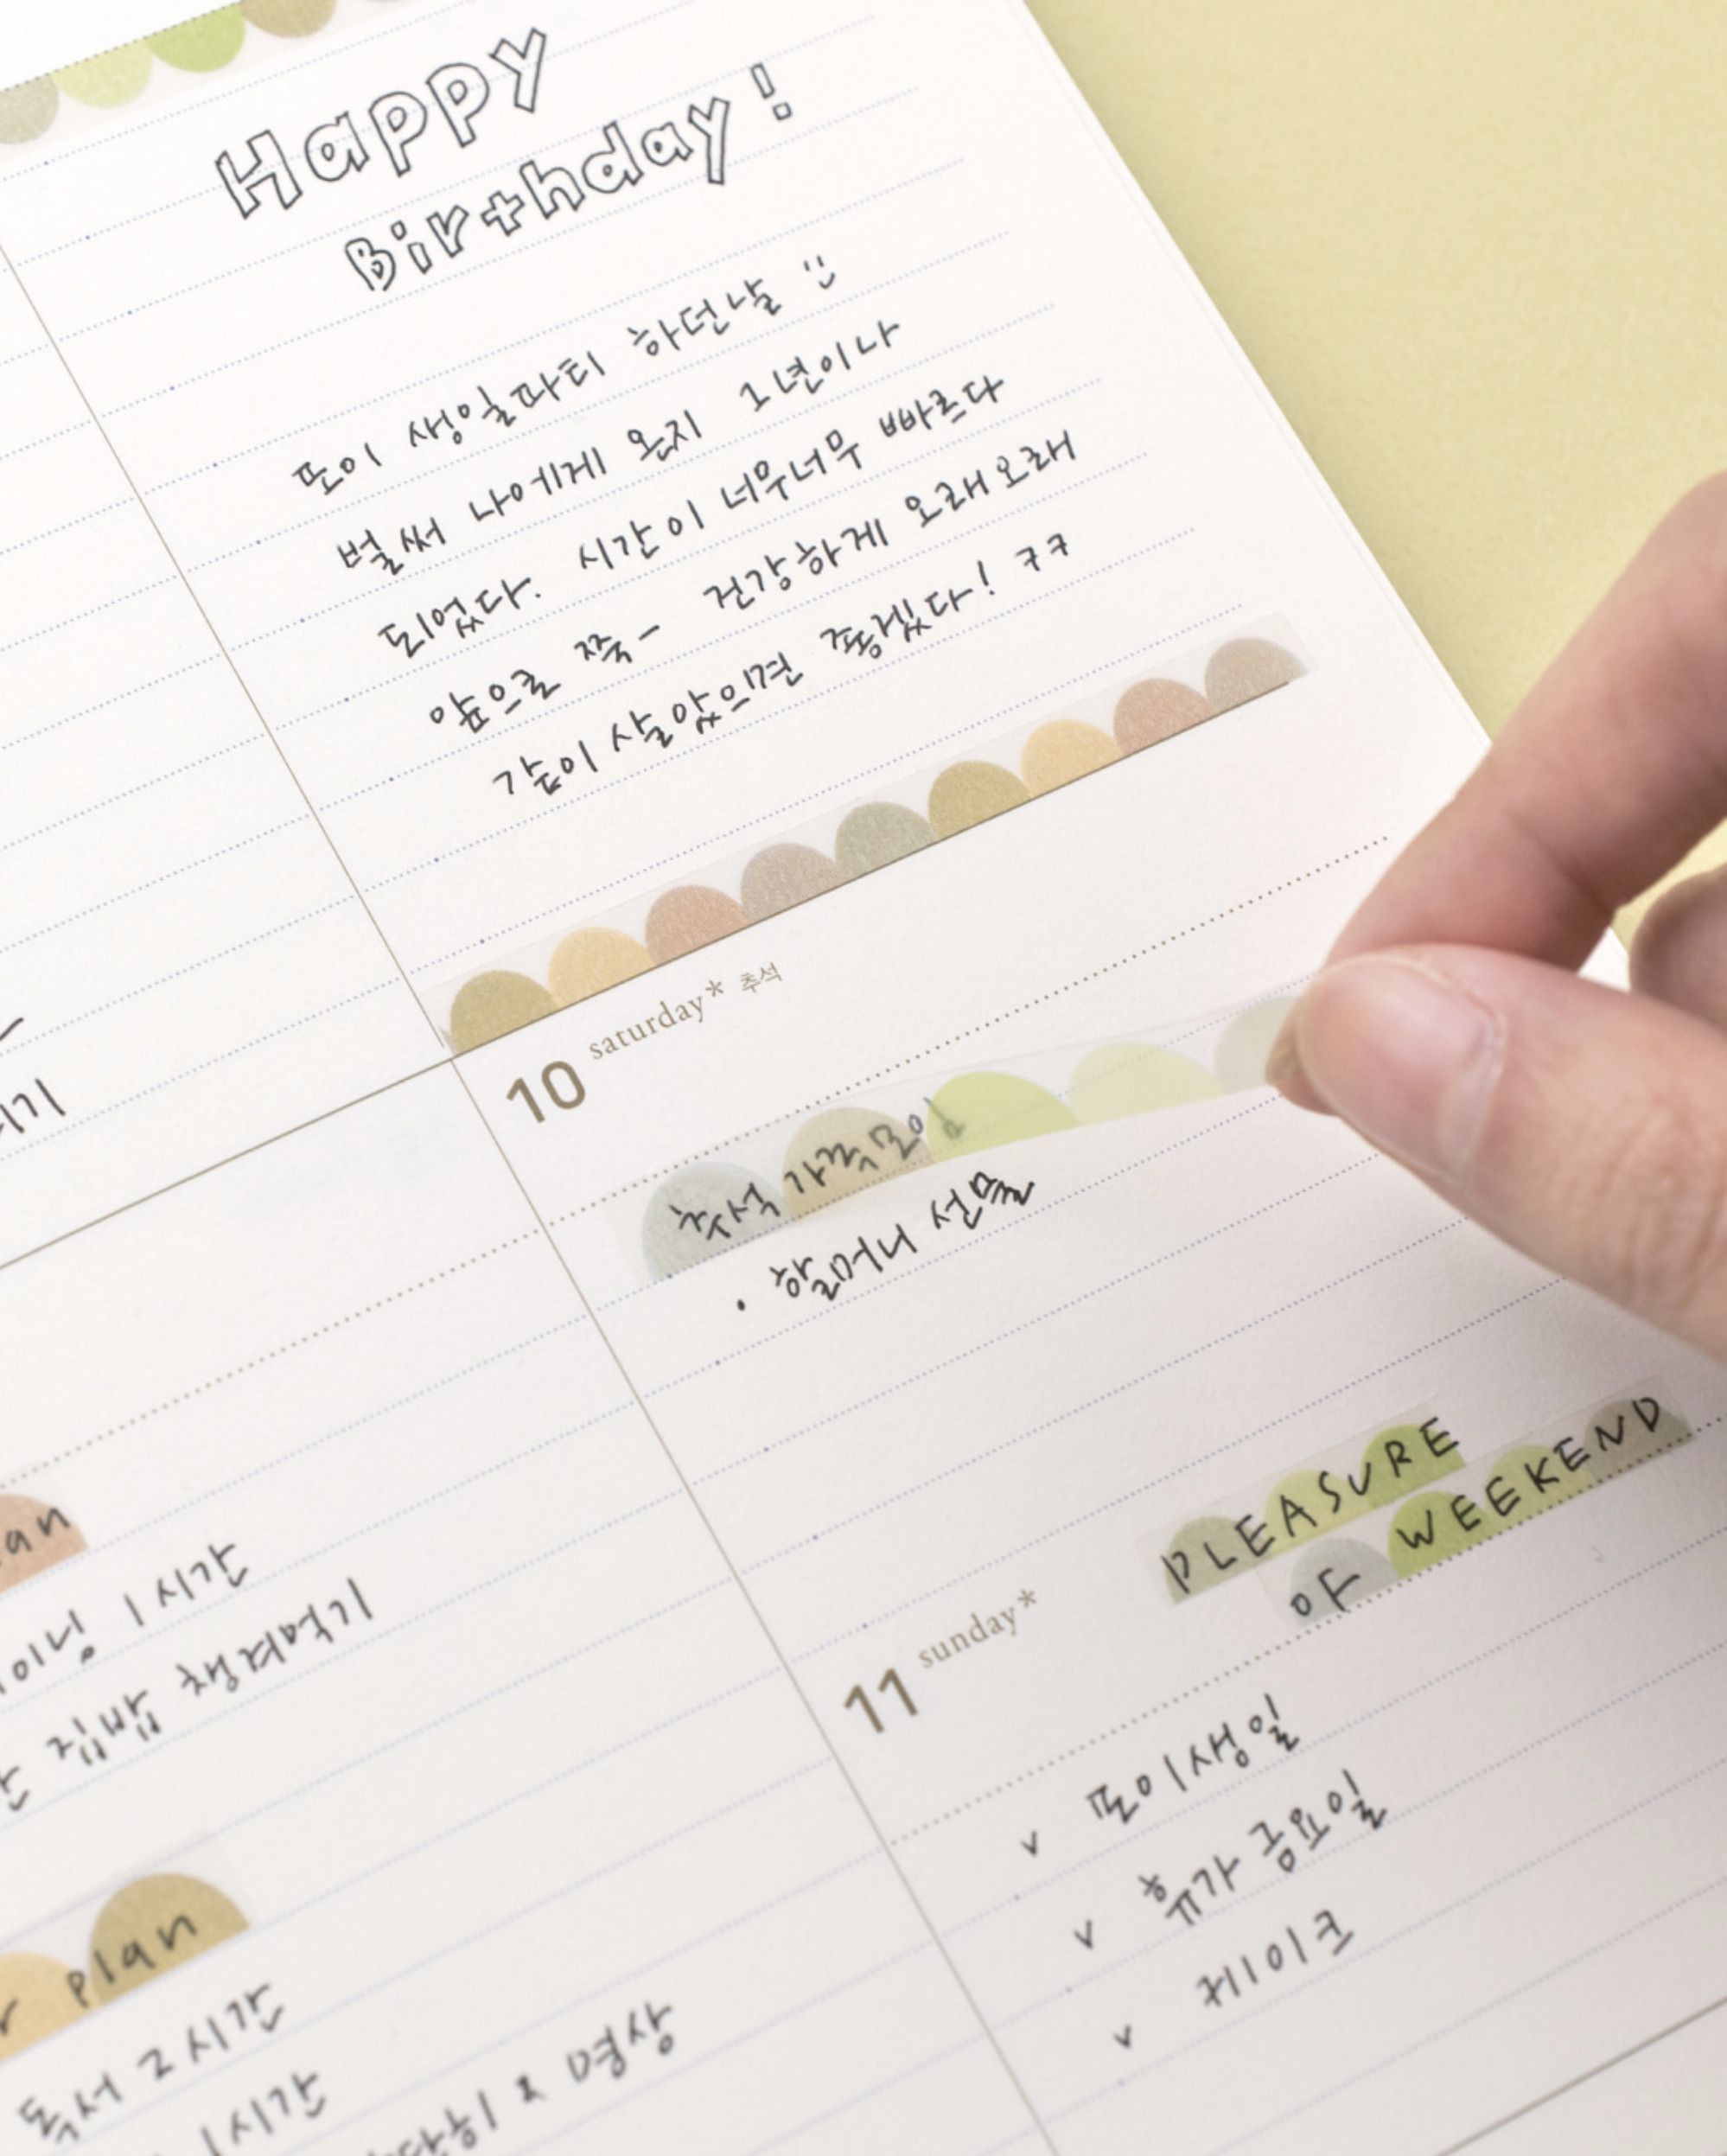 Happy
Birthday!
또이 생일파티 하던날 :)
벌써 나에게 온지 1년이나
되었다. 시간이 너무너무 빠르다
앞으로 쭉- 건강하게 오래오래
같이 살았으면 좋겠다! ㅋㅋ
10 saturday* 추석
추석 가족모임
· 할머니 선물
PLEASURE
OF WEEKEND
11 sunday*
v 또이생일
v 휴가 금요일
v 케이크
1시간
집밥 챙겨먹기
plan
독서 2시간
1시간
x 명상